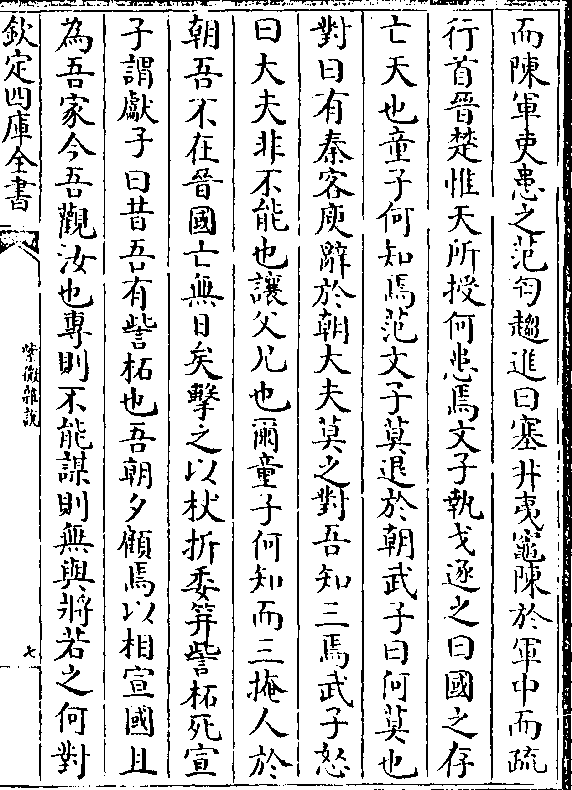 而陳軍吏患之范匄趨進曰塞井夷竈陳於軍中而疏
行首晉楚惟天所授何患焉文子執戈逐之曰國之存
亡天也童子何知焉范文子莫退於朝武子曰何莫也
對曰有秦客庾辭於朝大夫莫之對吾知三焉武子怒
曰大夫非不能也讓父兄也爾童子何知而三掩人於
朝吾不在晉國亡無日矣擊之以杖折委筓訾柘死宣
子謂獻子曰昔吾有訾柘也吾朝夕顧焉以相宣國且
為吾家今吾觀汝也專則不能謀則無與將若之何對
欽定四庫全書
紫微雜說
七